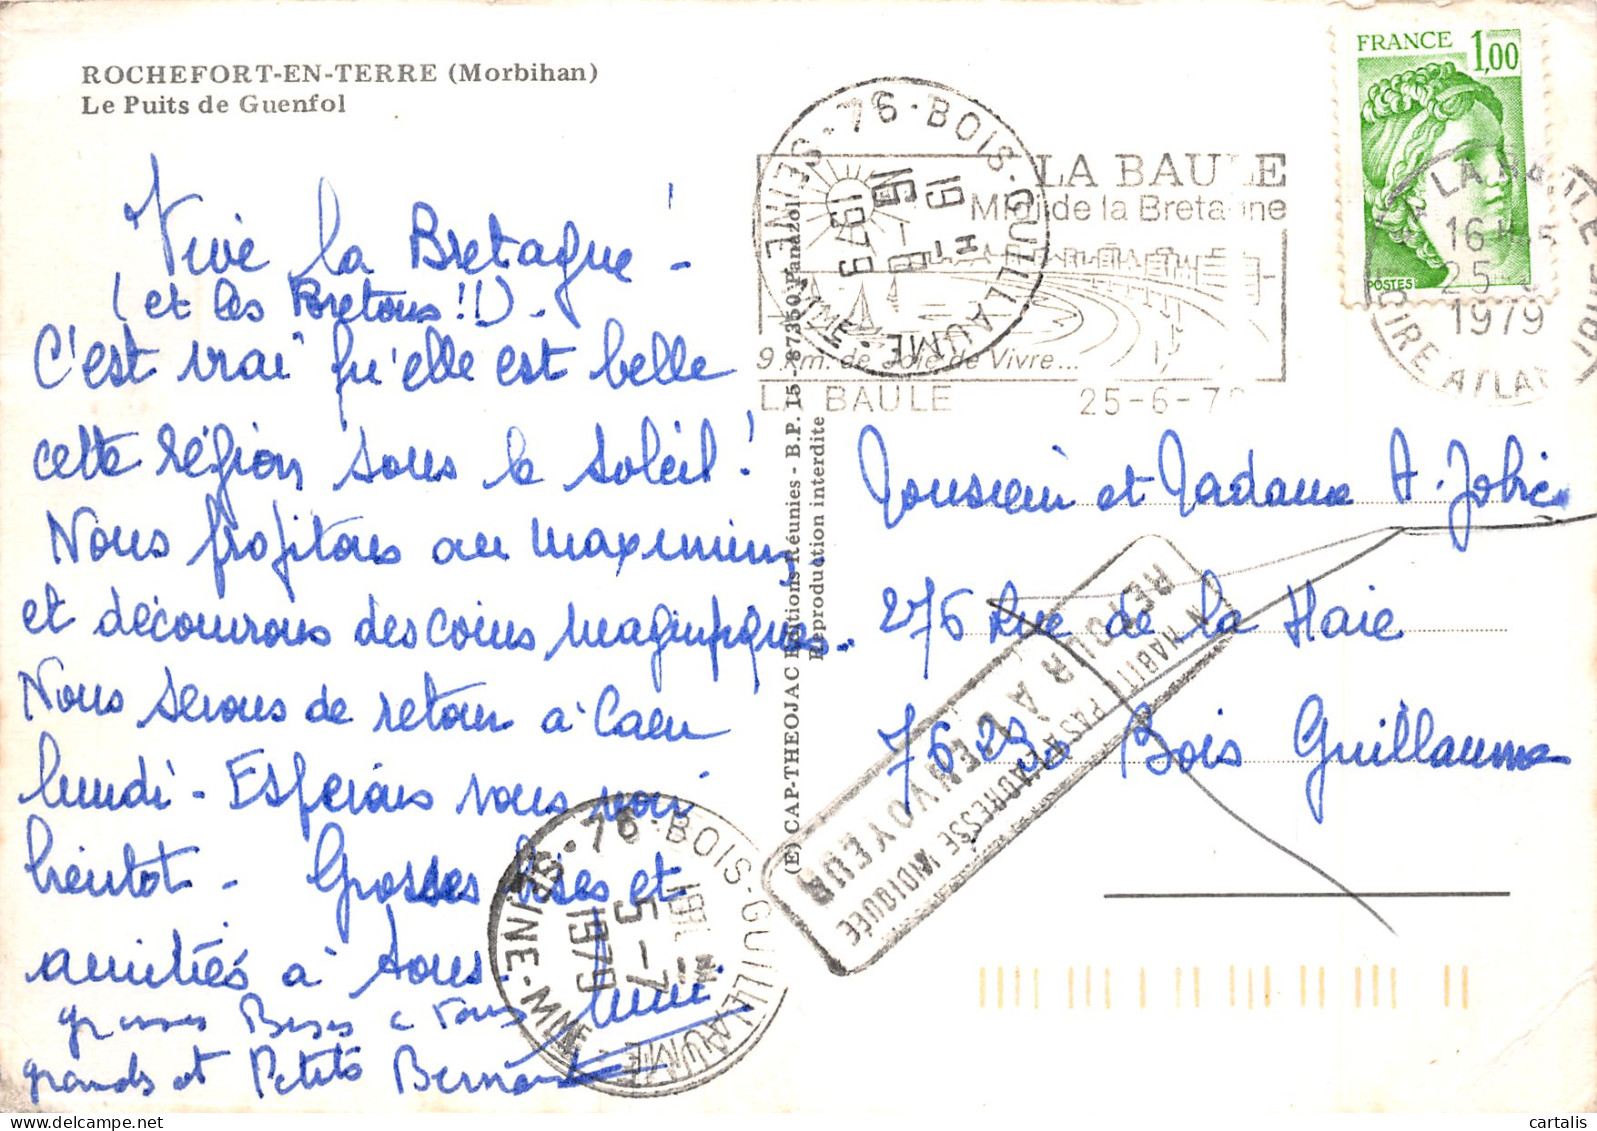 ROCHEFORT-EN-TERRE (Morbihan)
Le Puits de Guenfol
Vive la Bretagne !
(et les Bretons !!) -
C'est vrai qu'elle est belle
cette région sous le soleil !
Nous profitons au maximum
et découvrons des coins magnifiques.
Nous serons de retour à Caen
lundi - Espérons vous voir
bientôt - Grosses bises et
amitiés à tous.
grosses Bises a Tous
grands et Petits Bernard
(E) CAP-THEOJAC Editions Réunies - B.P. 15 - 87350 Panazol
Reproduction interdite
76 - BOIS-GUILLAUME - SEINE-MME
19 H
16
1979
LA BAULE
Midi de la Bretagne
9 km. de Joie de Vivre...
LA BAULE 25-6-79
FRANCE 1,00
POSTES
LA BAULE
16 H
25
1979
LOIRE ATLANTIQUE
Monsieur et Madame A. Jobic
276 Rue de la Haie
76230 Bois Guillaume
N'HABITE PAS A L'ADRESSE INDIQUÉE
RETOUR A L'ENVOYEUR
76 - BOIS-GUILLAUME
SEINE-MME
19H
5-7
1979
cartalis